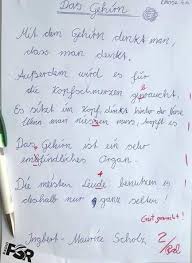 Das Gehirn
Mit dem Gehirn denkt man,
dass man denkt.
Außerdem wird es für
die Kopfschmerzen gebraucht.
Es sitzt im Kopf, direkt hinter der Nase
Wenn man niesen muss, tropft es
Das Gehirn ist ein sehr
empfindliches Organ.
Die meisten Leute benutzen es
deshalb nur ganz selten
Gut gemacht!
Ingbert-Maurice Scholz
2
FSR